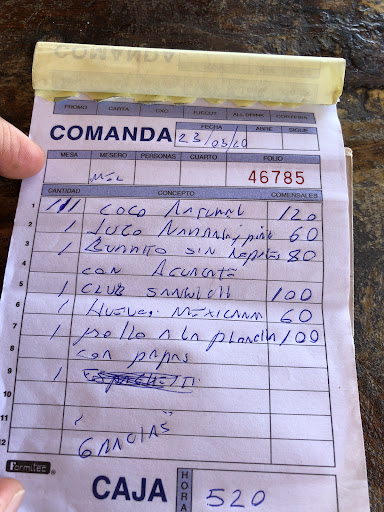 COMANDA
PROMO CARTA CXC EJECUT. ALL DRINK CORTESIA
COMANDA FECHA 23/03/20 ABRE SIGUE
MESA MESERO PERSONAS CUARTO FOLIO
MEL 46785
CANTIDAD CONCEPTO COMENSALES
1 111 COCO NATURAL 120
2 1 JUGO NARANJ/piña 60
3 1 BURRITO SIN 80
4 CON
5 1 CLUB SANWICH 100
6 1 HUEVOS MEXICANA 60
7 1 pollo A LA plancha 100
8 CON PAPAS
9 1
10
11 "
12 GRACIAS"
FORMITEC ®
CAJA HORA 520